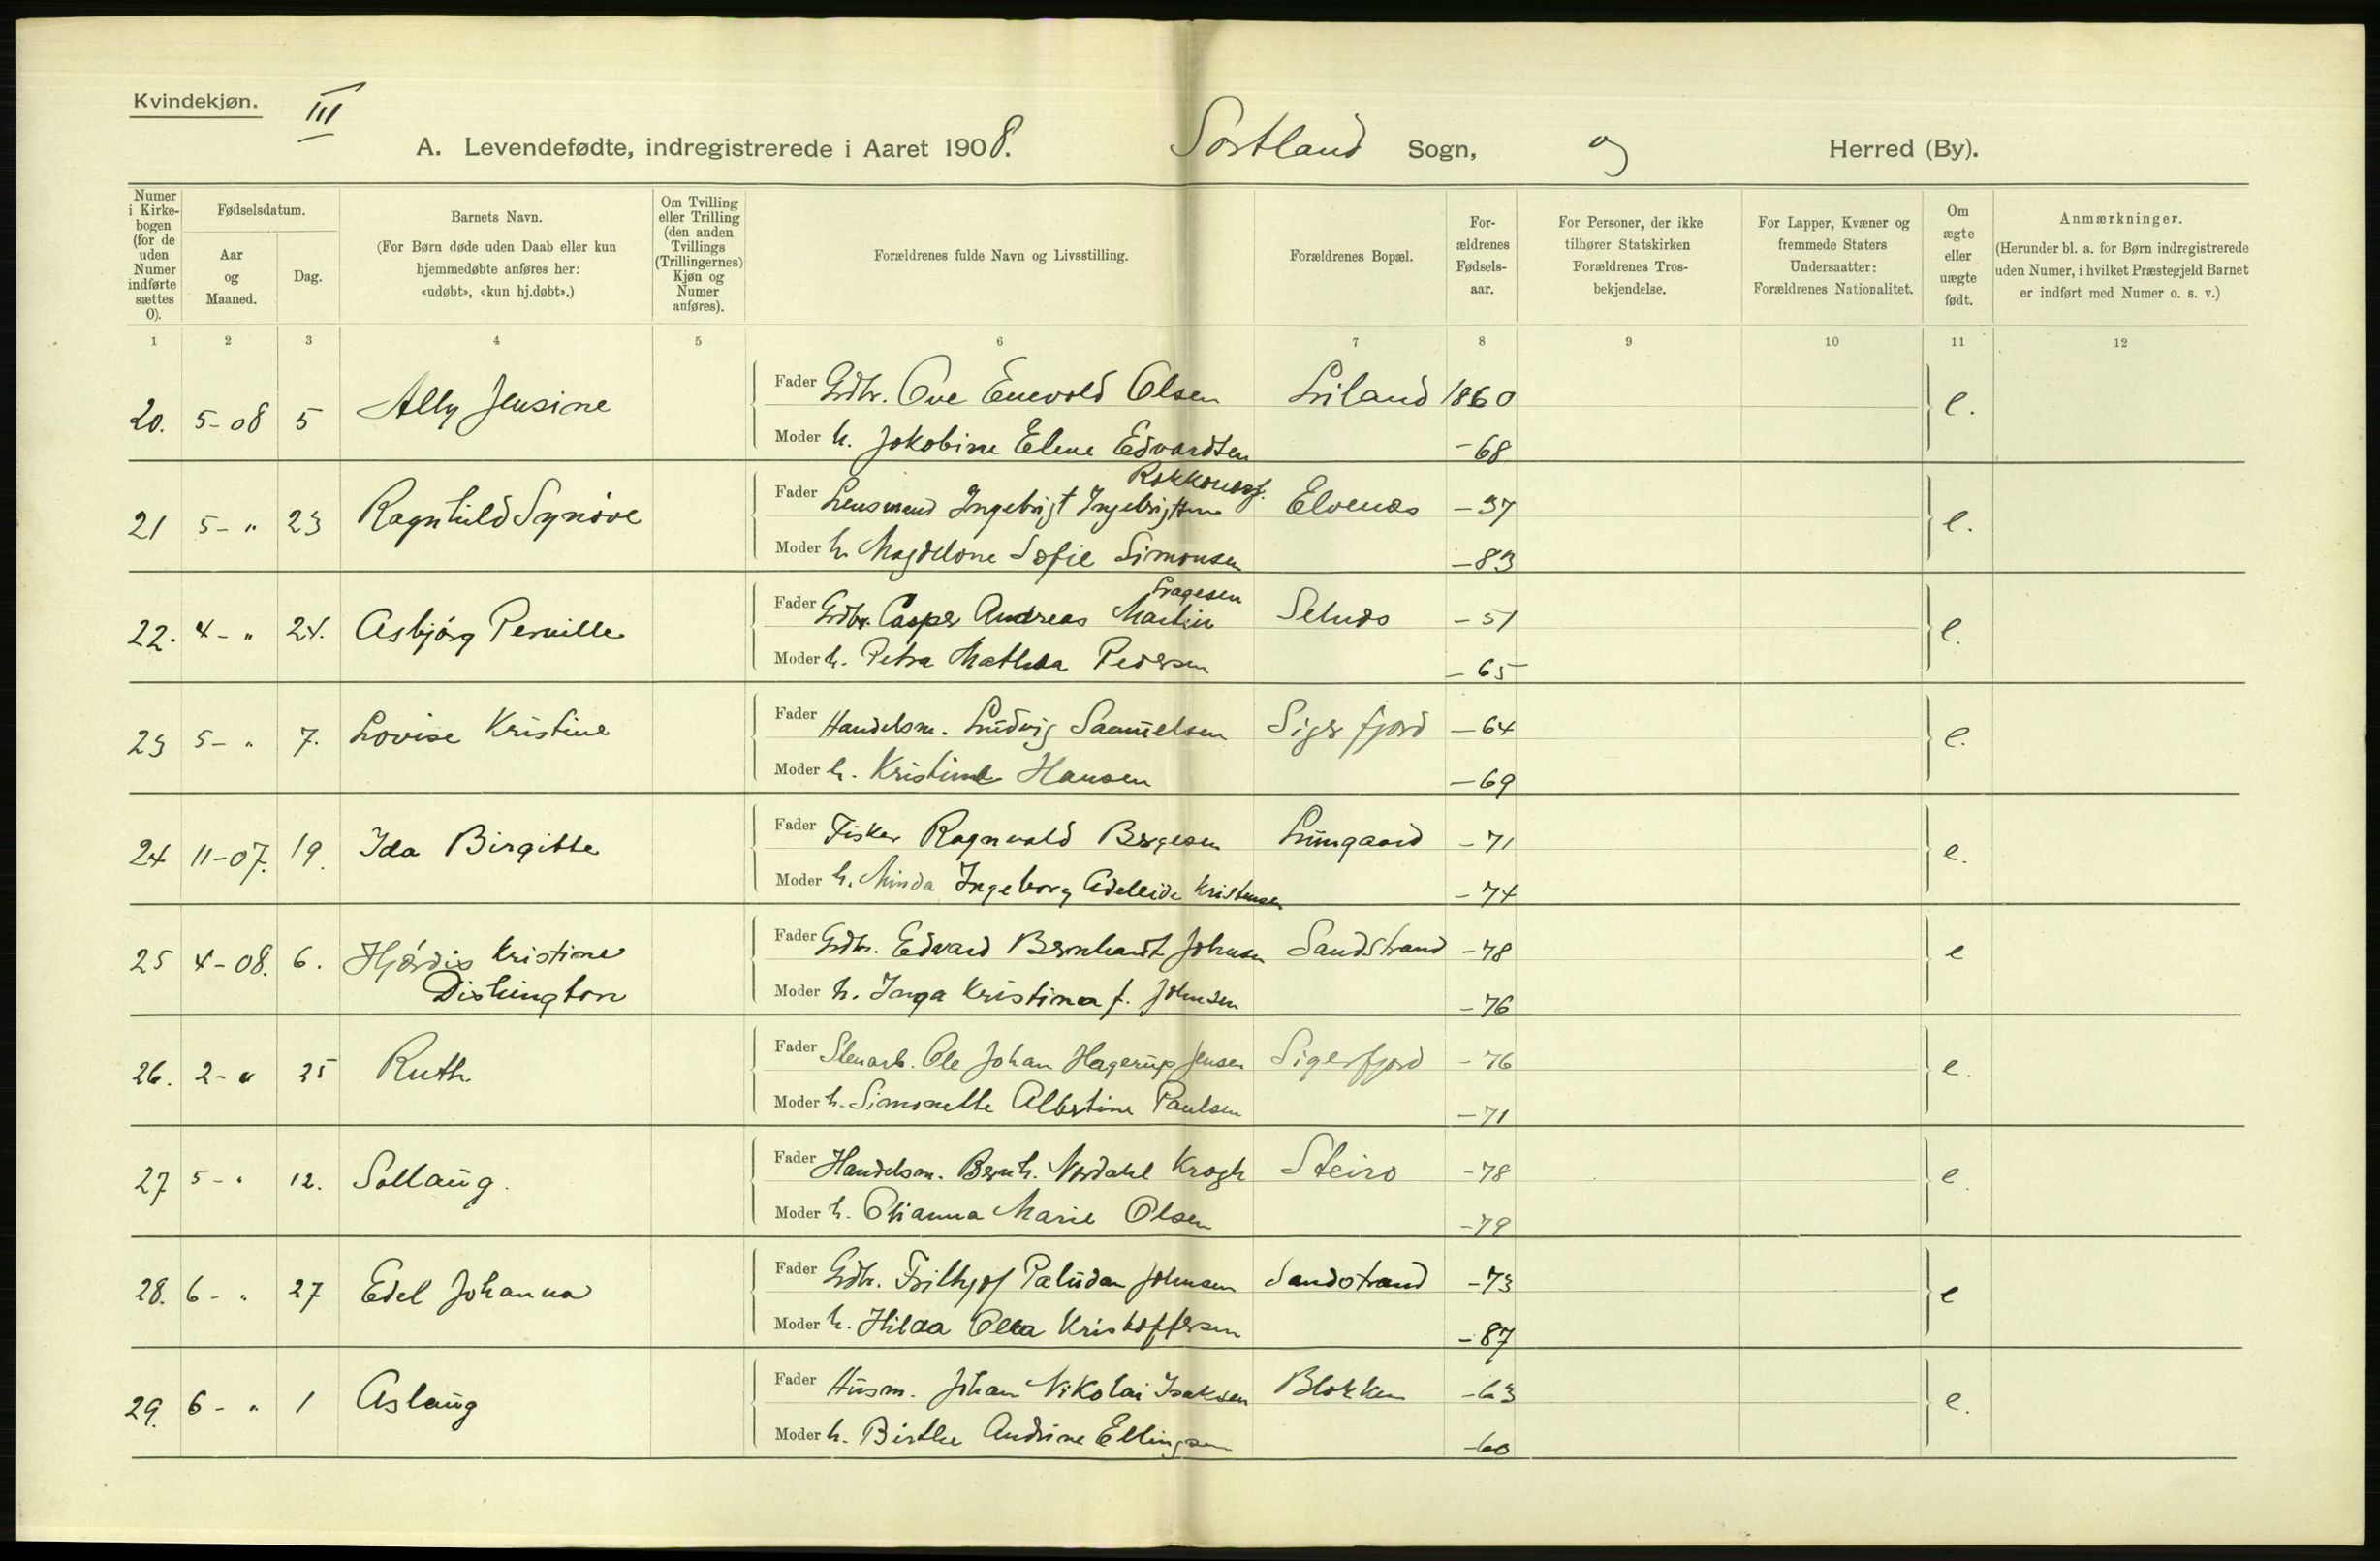 Kvindekjøn.
III
A. Levendefødte, indregistrerede i Aaret 1908. Sortland Sogn, og Herred (By).
Numer i Kirke-bogen (for de uden Numer indførte sættes 0).
Fødselsdatum.
Aar og Maaned.
Dag.
Barnets Navn.
(For Børn døde uden Daab eller kun hjemmedøbte anføres her: «udøbt», «kun hj.døbt».)
Om Tvilling eller Trilling (den anden Tvillings (Trillingernes) Kjøn og Numer anføres).
Forældrenes fulde Navn og Livsstilling.
Forældrenes Bopæl.
For-ældrenes Fødsels-aar.
For Personer, der ikke tilhører Statskirken Forældrenes Tros-bekjendelse.
For Lapper, Kvæner og fremmede Staters Undersaatter: Forældrenes Nationalitet.
Om ægte eller uægte født.
Anmærkninger.
(Herunder bl. a. for Børn indregistrerede uden Numer, i hvilket Præstegjeld Barnet er indført med Numer o. s. v.)
1 2 3 4 5 6 7 8 9 10 11 12
20. 5-08 5 Ally Jensine Fader Gdbr. Ove Enevold Olsen 1860 e.
Moder h. Jakobine Elene Edvardsen -68
21 5- " 23 Ragnhild Synøve Fader Lensmand Ingebrigt Ingebrigtsen Elvenes -37 e.
Moder h. Magdelone Sofie Simonsen -83
22. 4- " 24. Asbjørg Pernille Fader Gdbr. Casper Andreas Martin Dragesen Selnes -51 e.
Moder h. Petra Mathea Pedersen -65
23 5- " 7. Lovise Kristine Fader Handelsm. Ludvig Samuelsen Sigerfjord -64 e.
Moder h. Kristine Hansen -69
24 11-07. 19. Ida Birgitte Fader Fisker Ragnvald Bergesen -71 e.
Moder h. Minda Ingeborg Adeleide Kristensen -74
25 4-08. 6. Hjørdis Kristine Dishington Fader Gdbr. Edvard Bernhardt Johnsen Sandstrand -78 e
Moder h. Inga Kristina f. Johnsen -76
26. 2- " 25 Ruth. Fader Stenarb. Ole Johan Hagerup Jensen Sigerfjord -76 e.
Moder h. Simonette Albertine Paulsen -71
27 5- " 12. Sollaug. Fader Handelsm. Bernh. Nordahl Krogh Steiro -78 e.
Moder h. Olianna Marie Olsen -79
28. 6- " 27 Edel Johanna Fader Gdbr. Frithjof Paludan Johnsen Sandstrand -73 e
Moder h. Hilda Olea Kristoffersen -87
29. 6- " 1 Aslaug Fader Husm. Johan Nikolai Isaksen Blokken -63 e.
Moder h. Birthe Andrine Ellingsen -60